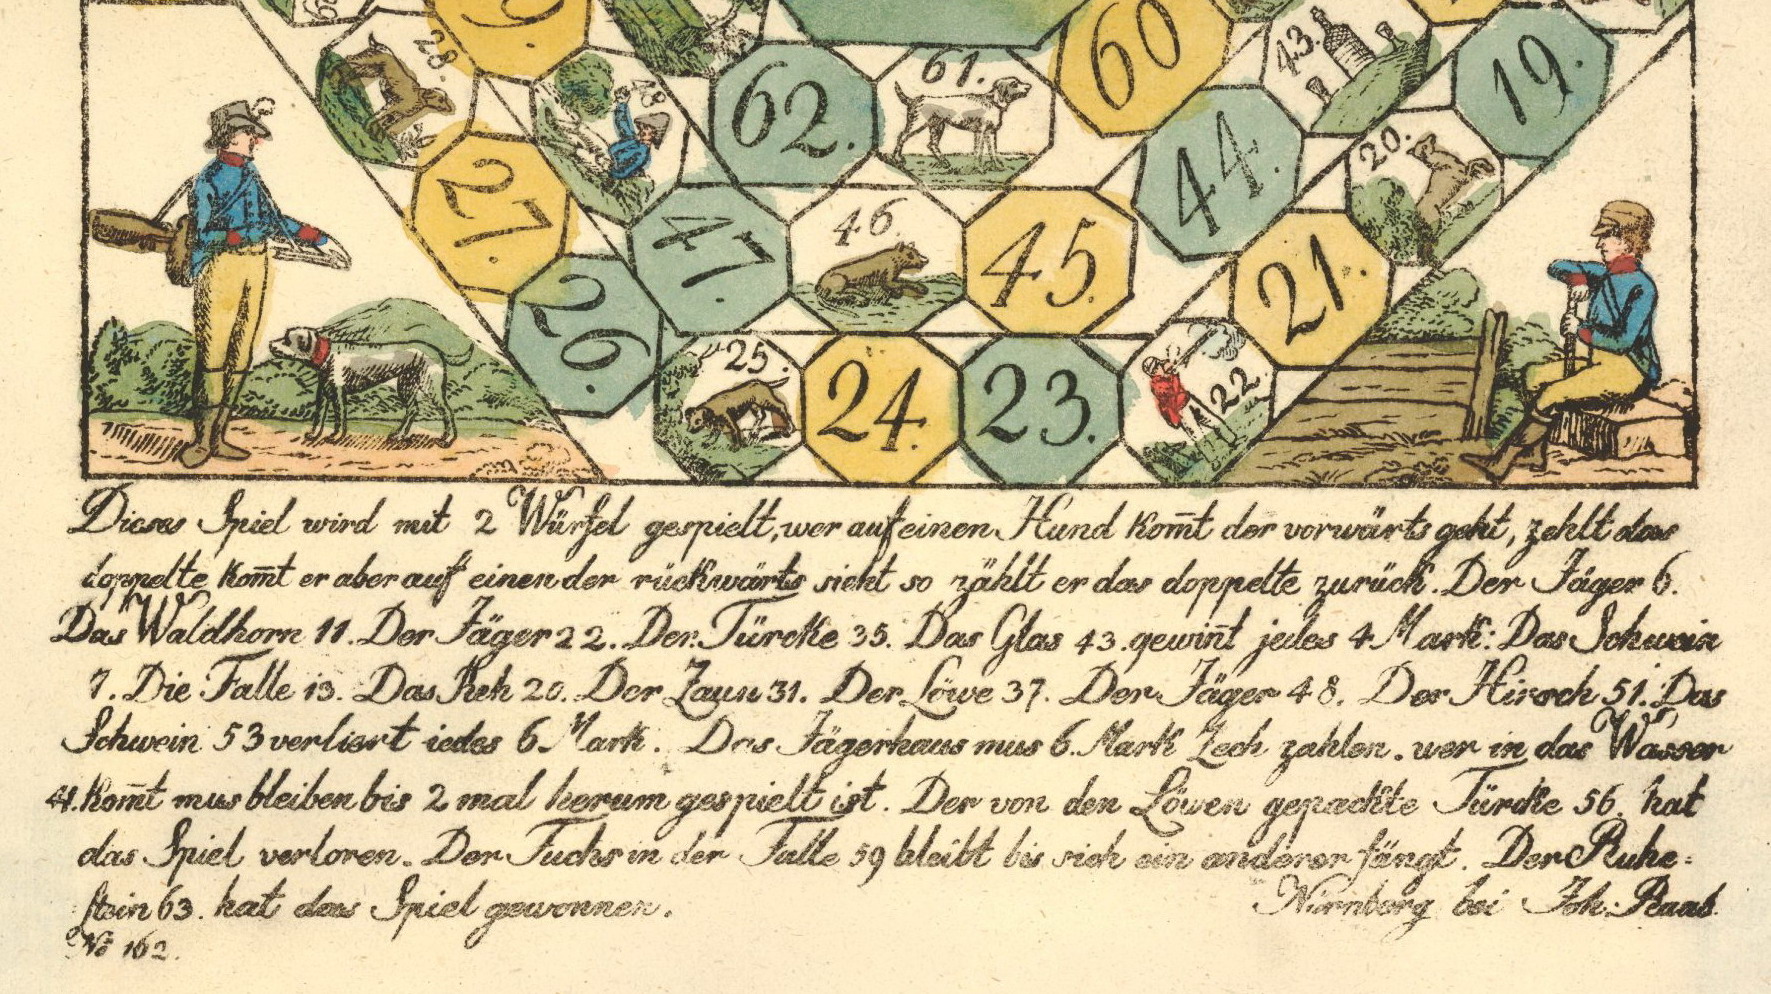 29.
60
28.
43.
19.
61.
62.
48
44.
20.
27.
47.
46.
45.
21.
26.
25.
24.
23.
22.
Dieses Spiel wird mit 2 Würfel gespielt, wer auf einen Hund kom̅t der vorwärts geht, zehlt das
doppelte kom̅t er aber auf einen der rückwärts sieht so zählt er das doppelte zurück. Der Jäger 6.
Das Waldhorn 11. Der Jäger 22. Der Türcke 35. Das Glas 43. gewin̅t jedes 4 Mark: Das Schwein
7. Die Falle 13. Das Reh 20. Der Zaun 31. Der Löwe 37. Der Jäger 48. Der Hirsch 51. Das
Schwein 53 verliert iedes 6. Mark. Das Jägerhaus mus 6. Mark Zech zahlen. wer in das Wasser
41. kom̅t mus bleiben bis 2 mal herum gespielt ist. Der von den Löwen gepackte Türcke 56. hat
das Spiel verloren. Der Fuchs in der Falle 59 bleibt bis sich ein anderer fängt. Der Ruhe=
stein 63. hat das Spiel gewonnen. Nürnberg bei Joh. Raab.
No 162.